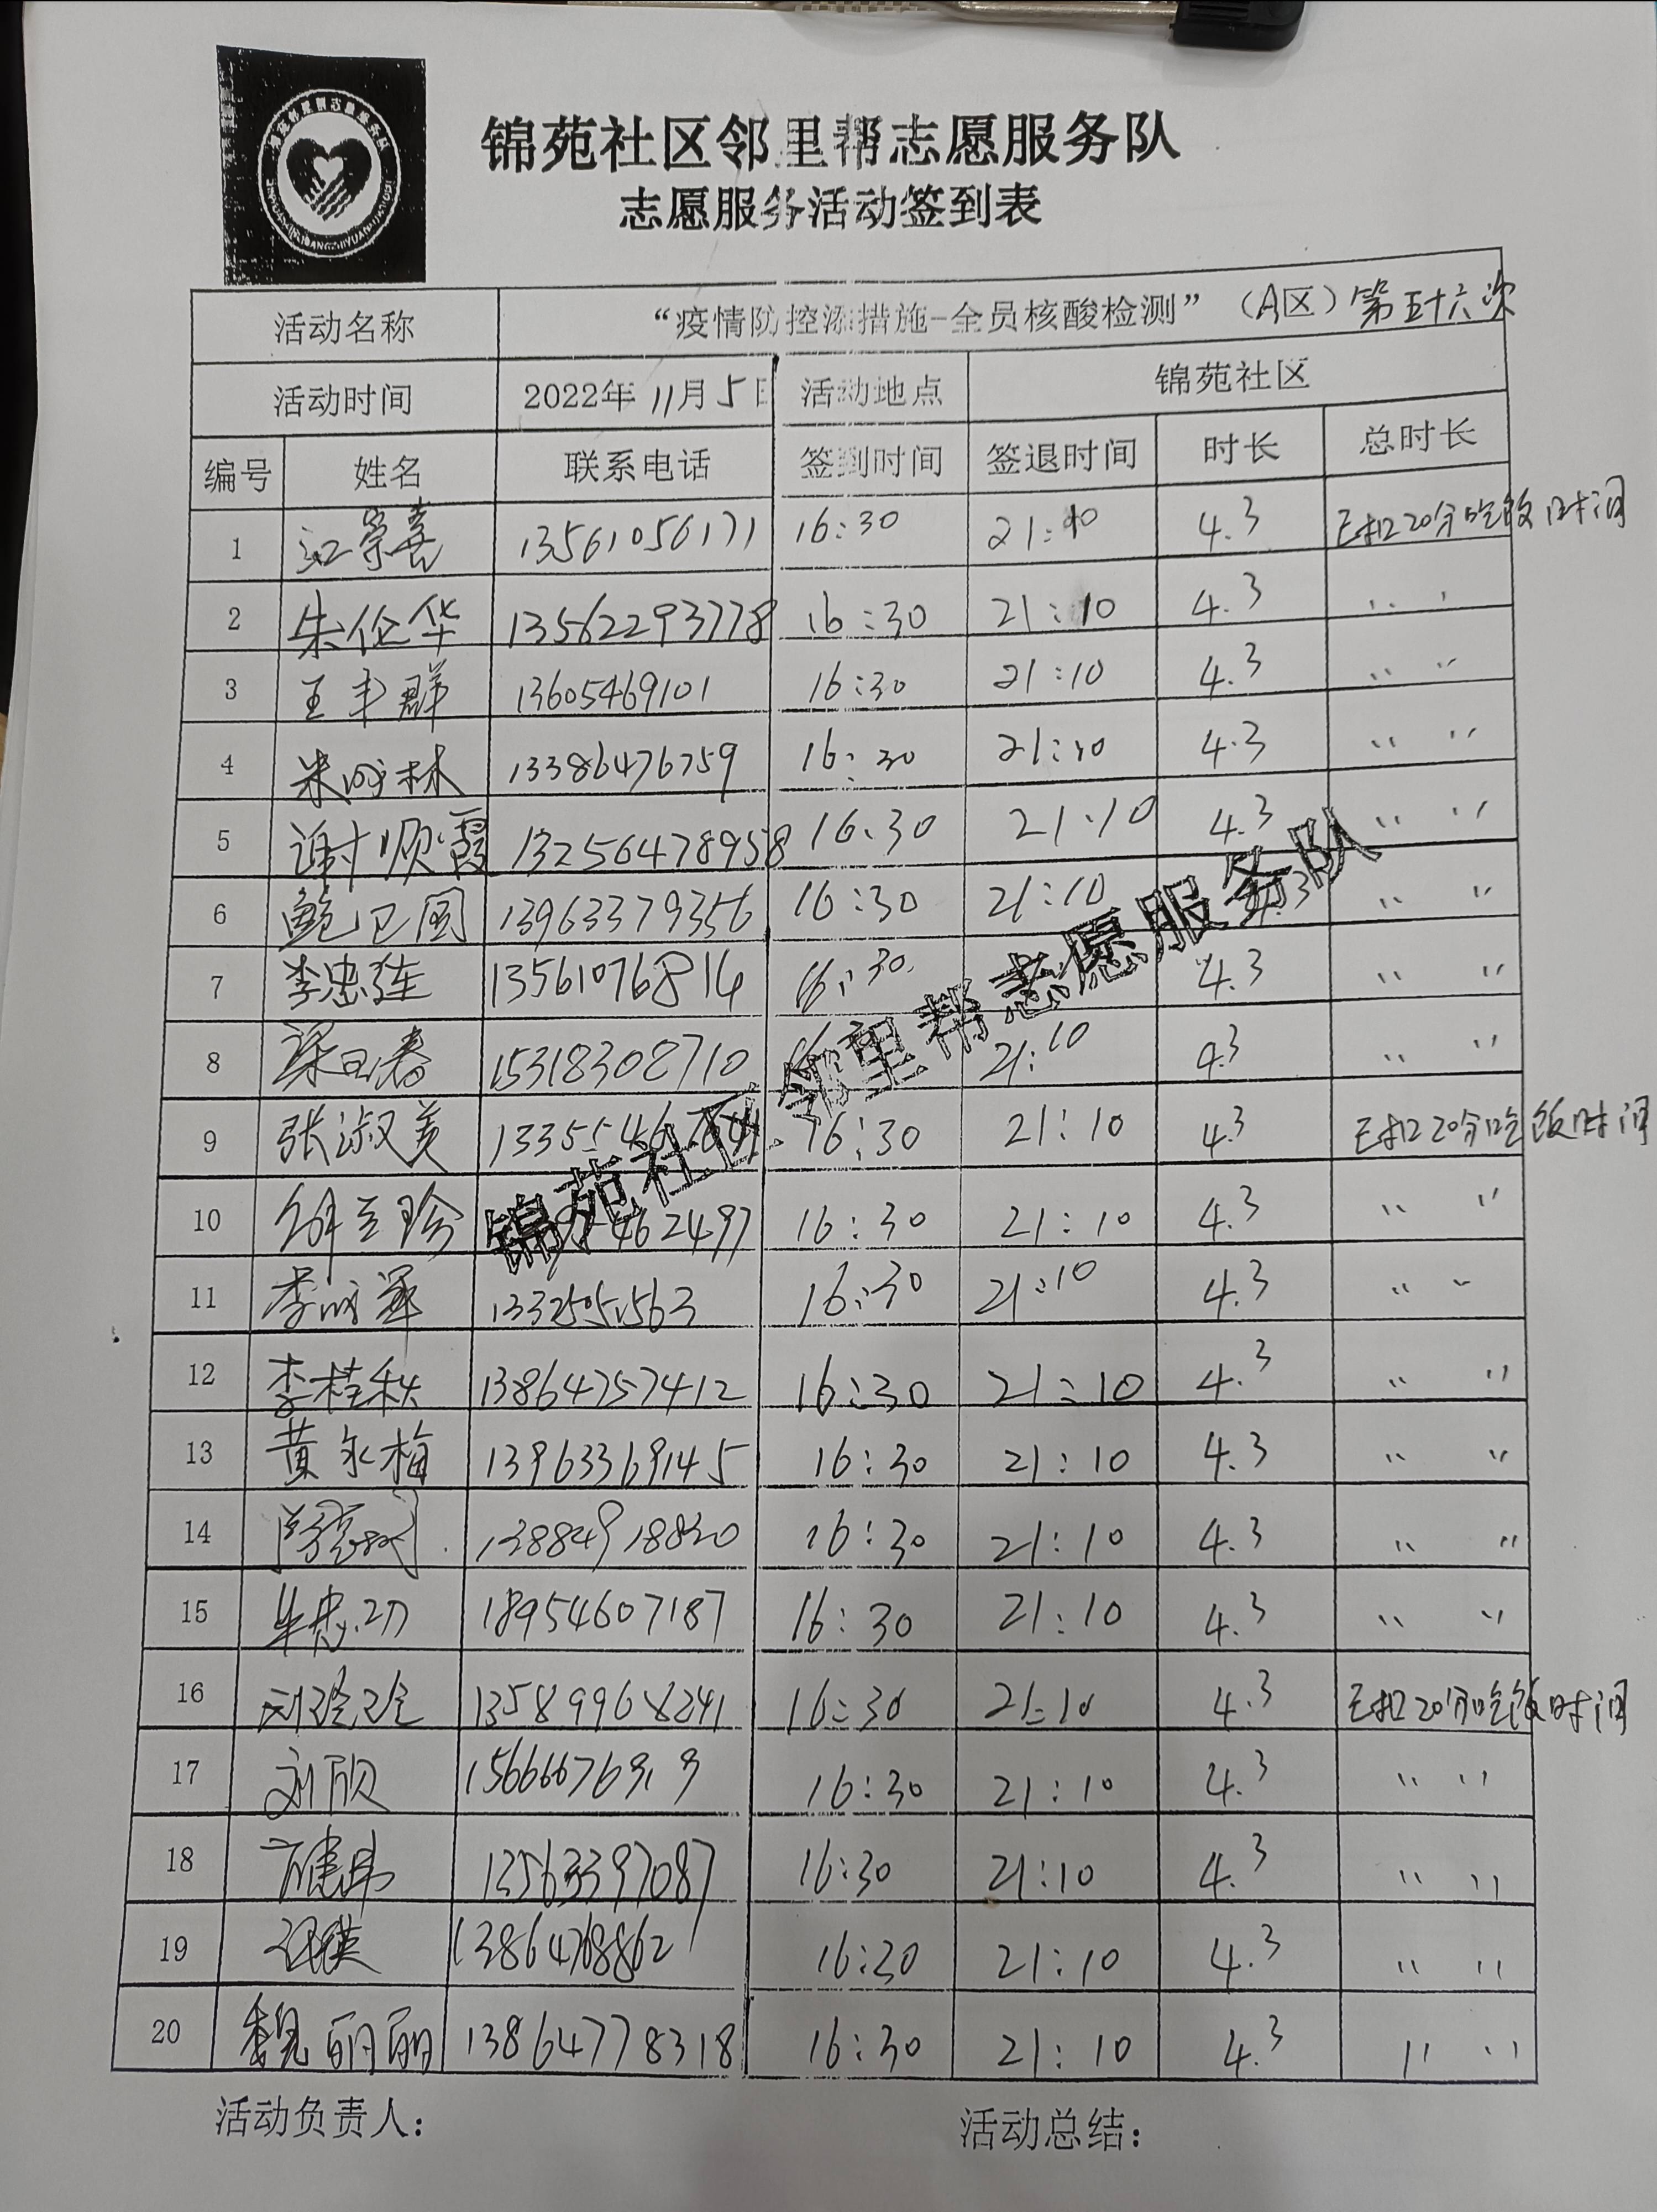 锦苑社区邻里帮志愿服务队
志愿服务活动签到表
活动名称 “疫情防控添措施-全员核酸检测”（A区）第五十六次
活动时间 2022年11月5日 活动地点 锦苑社区
编号 姓名 联系电话 签到时间 签退时间 时长 总时长
1 江崇喜 13561056171 16:30 21:10 4.3 已扣20分吃饭时间
2 朱伦华 13562293778 16:30 21:10 4.3 〃 〃
3 王丰群 13605469101 16:30 21:10 4.3 〃 〃
4 13386476759 16:30 21:10 4.3 〃 〃
5 谢顺霞 13256478958 16:30 21:10 4.3 〃 〃
6 鲍卫国 13963379356 16:30 21:10 4.3 〃 〃
7 李忠莲 13561076814 16:30 4.3 〃 〃
8 15318308710 21:10 4.3 〃 〃
9 张淑美 16:30 21:10 4.3 已扣20分吃饭时间
10 16:30 21:10 4.3 〃 〃
11 16:30 21:10 4.3 〃 〃
12 李桂秋 13864757412 16:30 21:10 4.3 〃 〃
13 黄永梅 13963369145 16:30 21:10 4.3 〃 〃
14 13884918830 16:30 21:10 4.3 〃 〃
15 牟忠功 18954607187 16:30 21:10 4.3 〃 〃
16 刘玲玲 13589968241 16:30 21:10 4.3 已扣20分吃饭时间
17 刘欣 16:30 21:10 4.3 〃 〃
18 13563397087 16:30 21:10 4.3 〃 〃
19 13864768862 16:30 21:10 4.3 〃 〃
20 魏丽丽 13864778318 16:30 21:10 4.3 〃 〃
锦苑社区邻里帮志愿服务队
活动负责人： 活动总结：